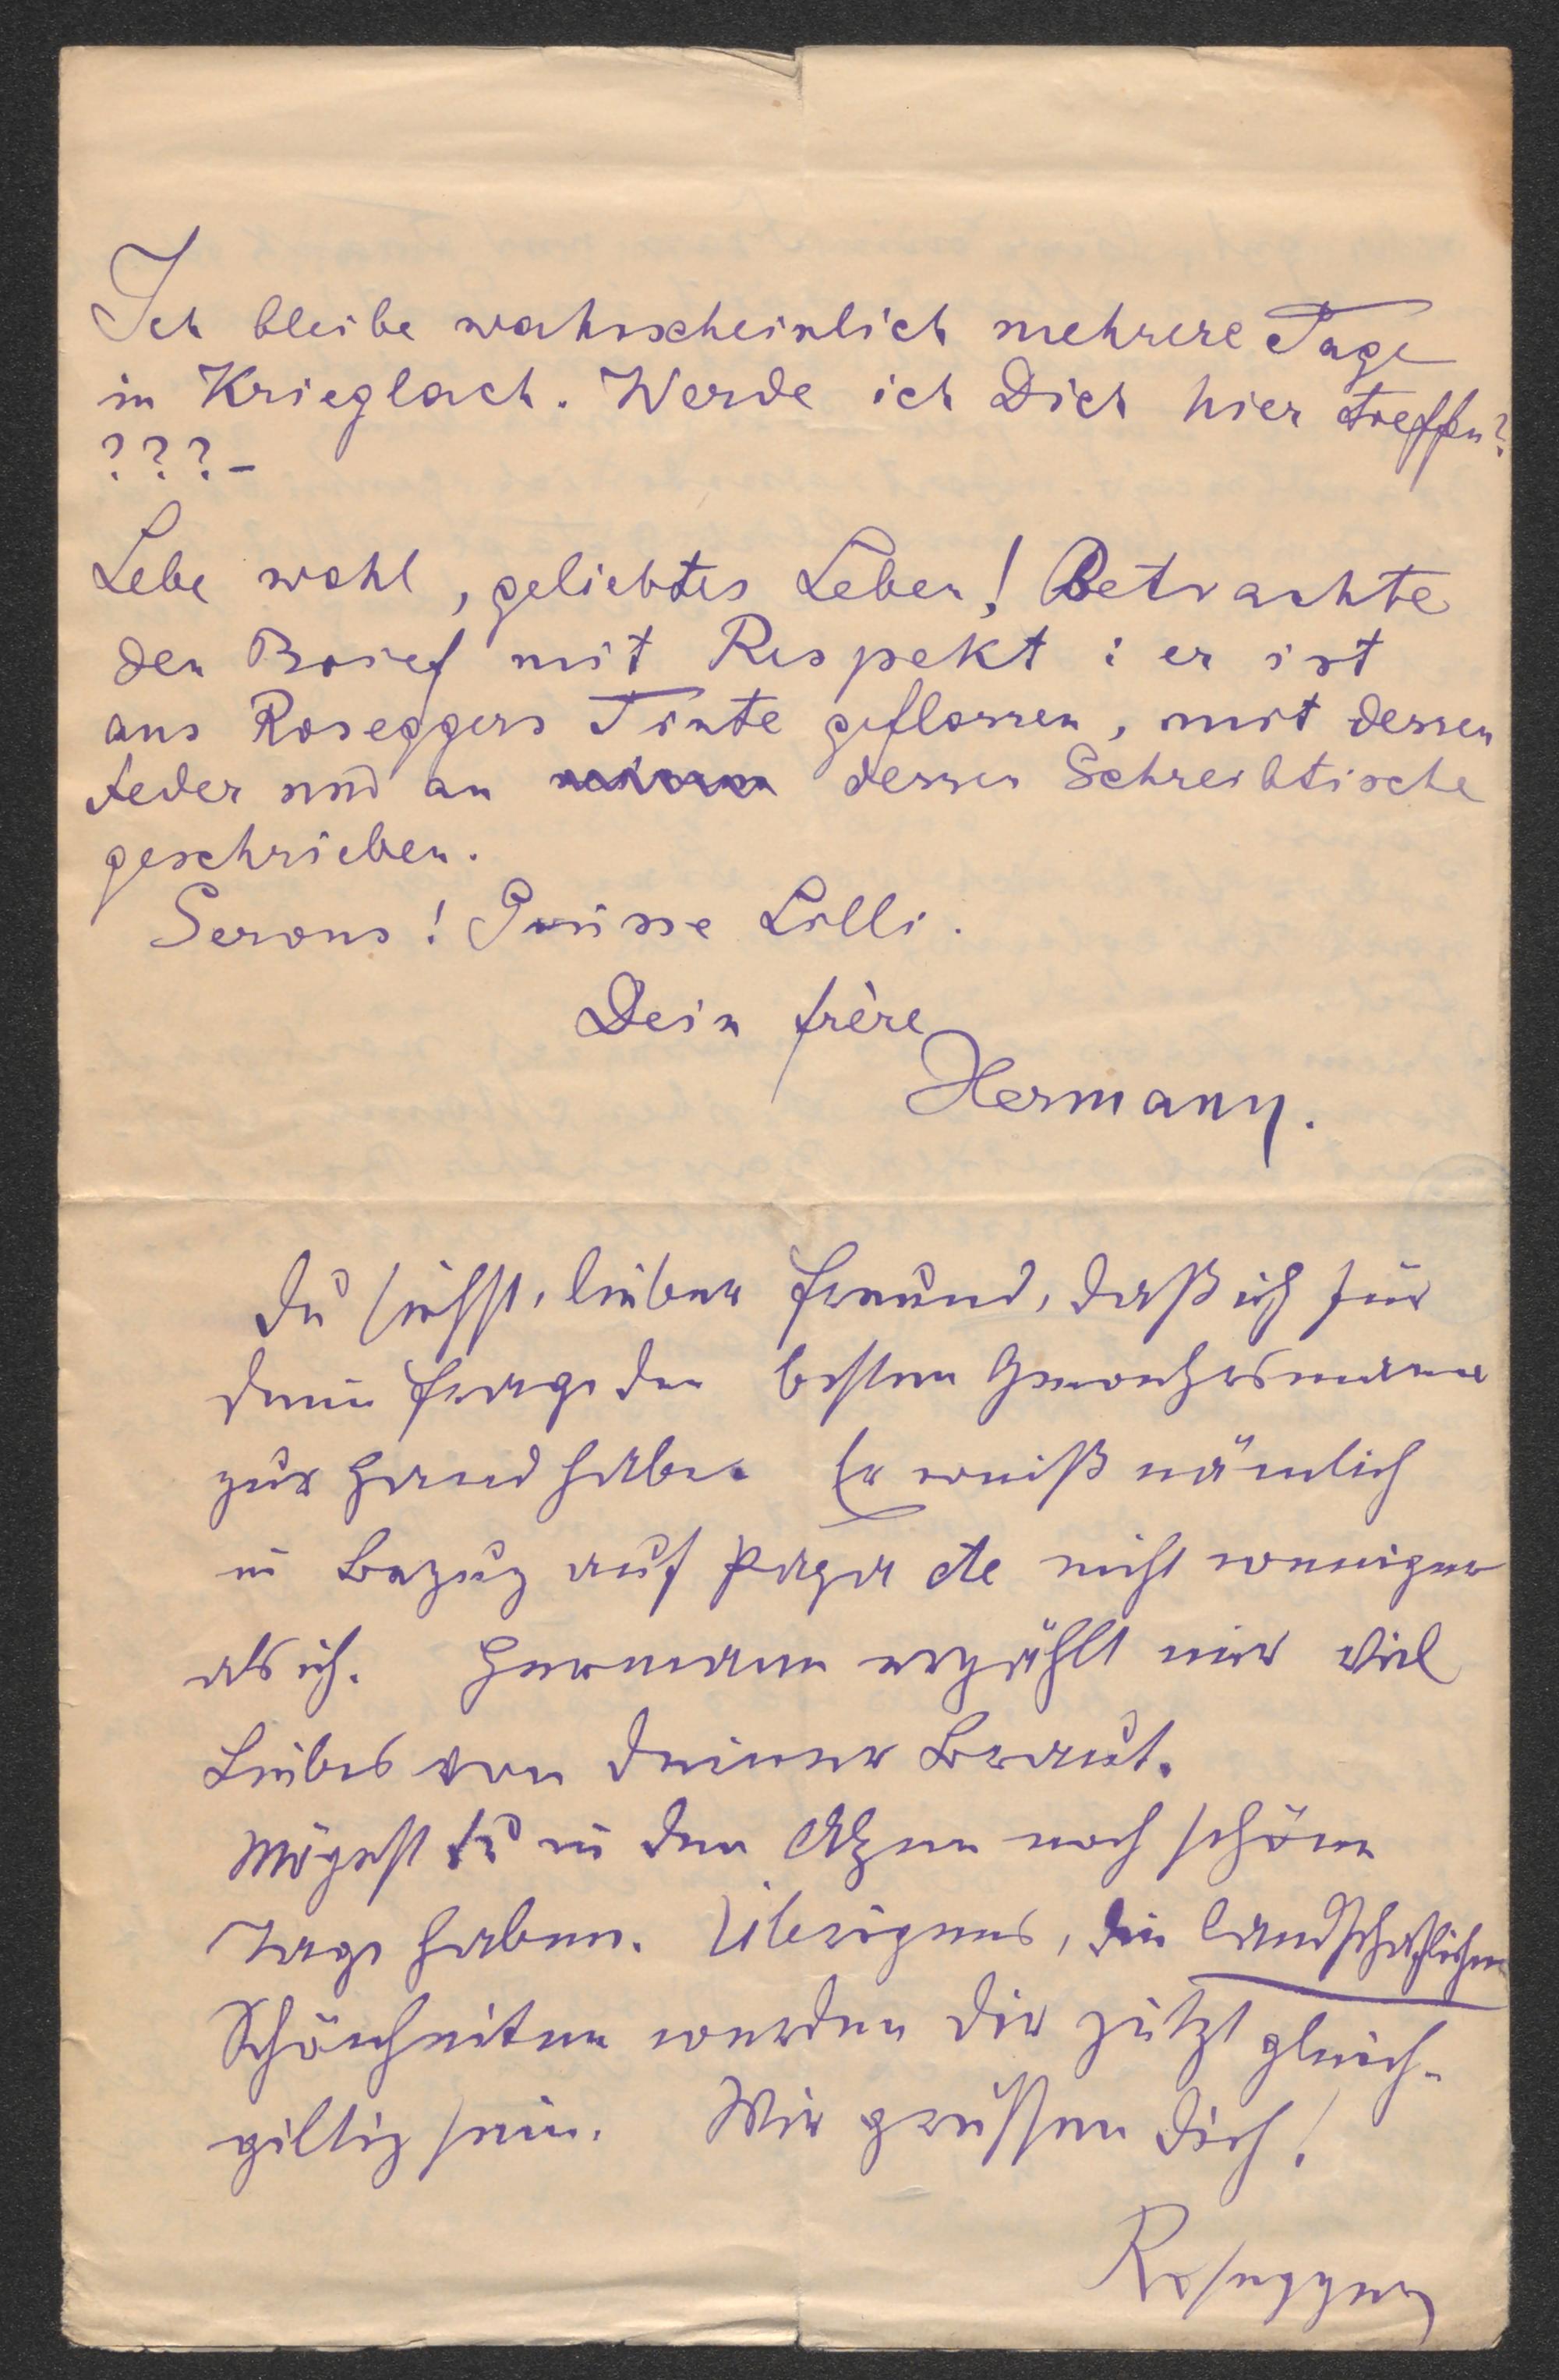 Ich bleibe wahrscheinlich mehrere Tage
in Krieglach. Werde ich Dich hier treffen?
???-
Lebe wohl, geliebtes Leben! Betrachte
den Brief mit Respekt: er ist
aus Roseggers Tinte geflossen, mit dessen
Feder und an dessen Schreibtische
geschrieben.
Servus! Grüsse Lilli.
Dein frère
Hermann.
Du siehst, lieber Freund, daß ich für
deine Frage den besten Gewährsmann
zur Hand habe. Er weiß nämlich
in Bezug auf nicht weniger
als ich. Hermann erzählt mir viel
Liebes von deiner Braut.
Mögest du in den Alpen noch schöne
Tage haben. Übrigens, die landschaftlichen
Schönheiten werden dir jetzt gleich-
giltig sein. Wir grüssen dich!
Rosegger